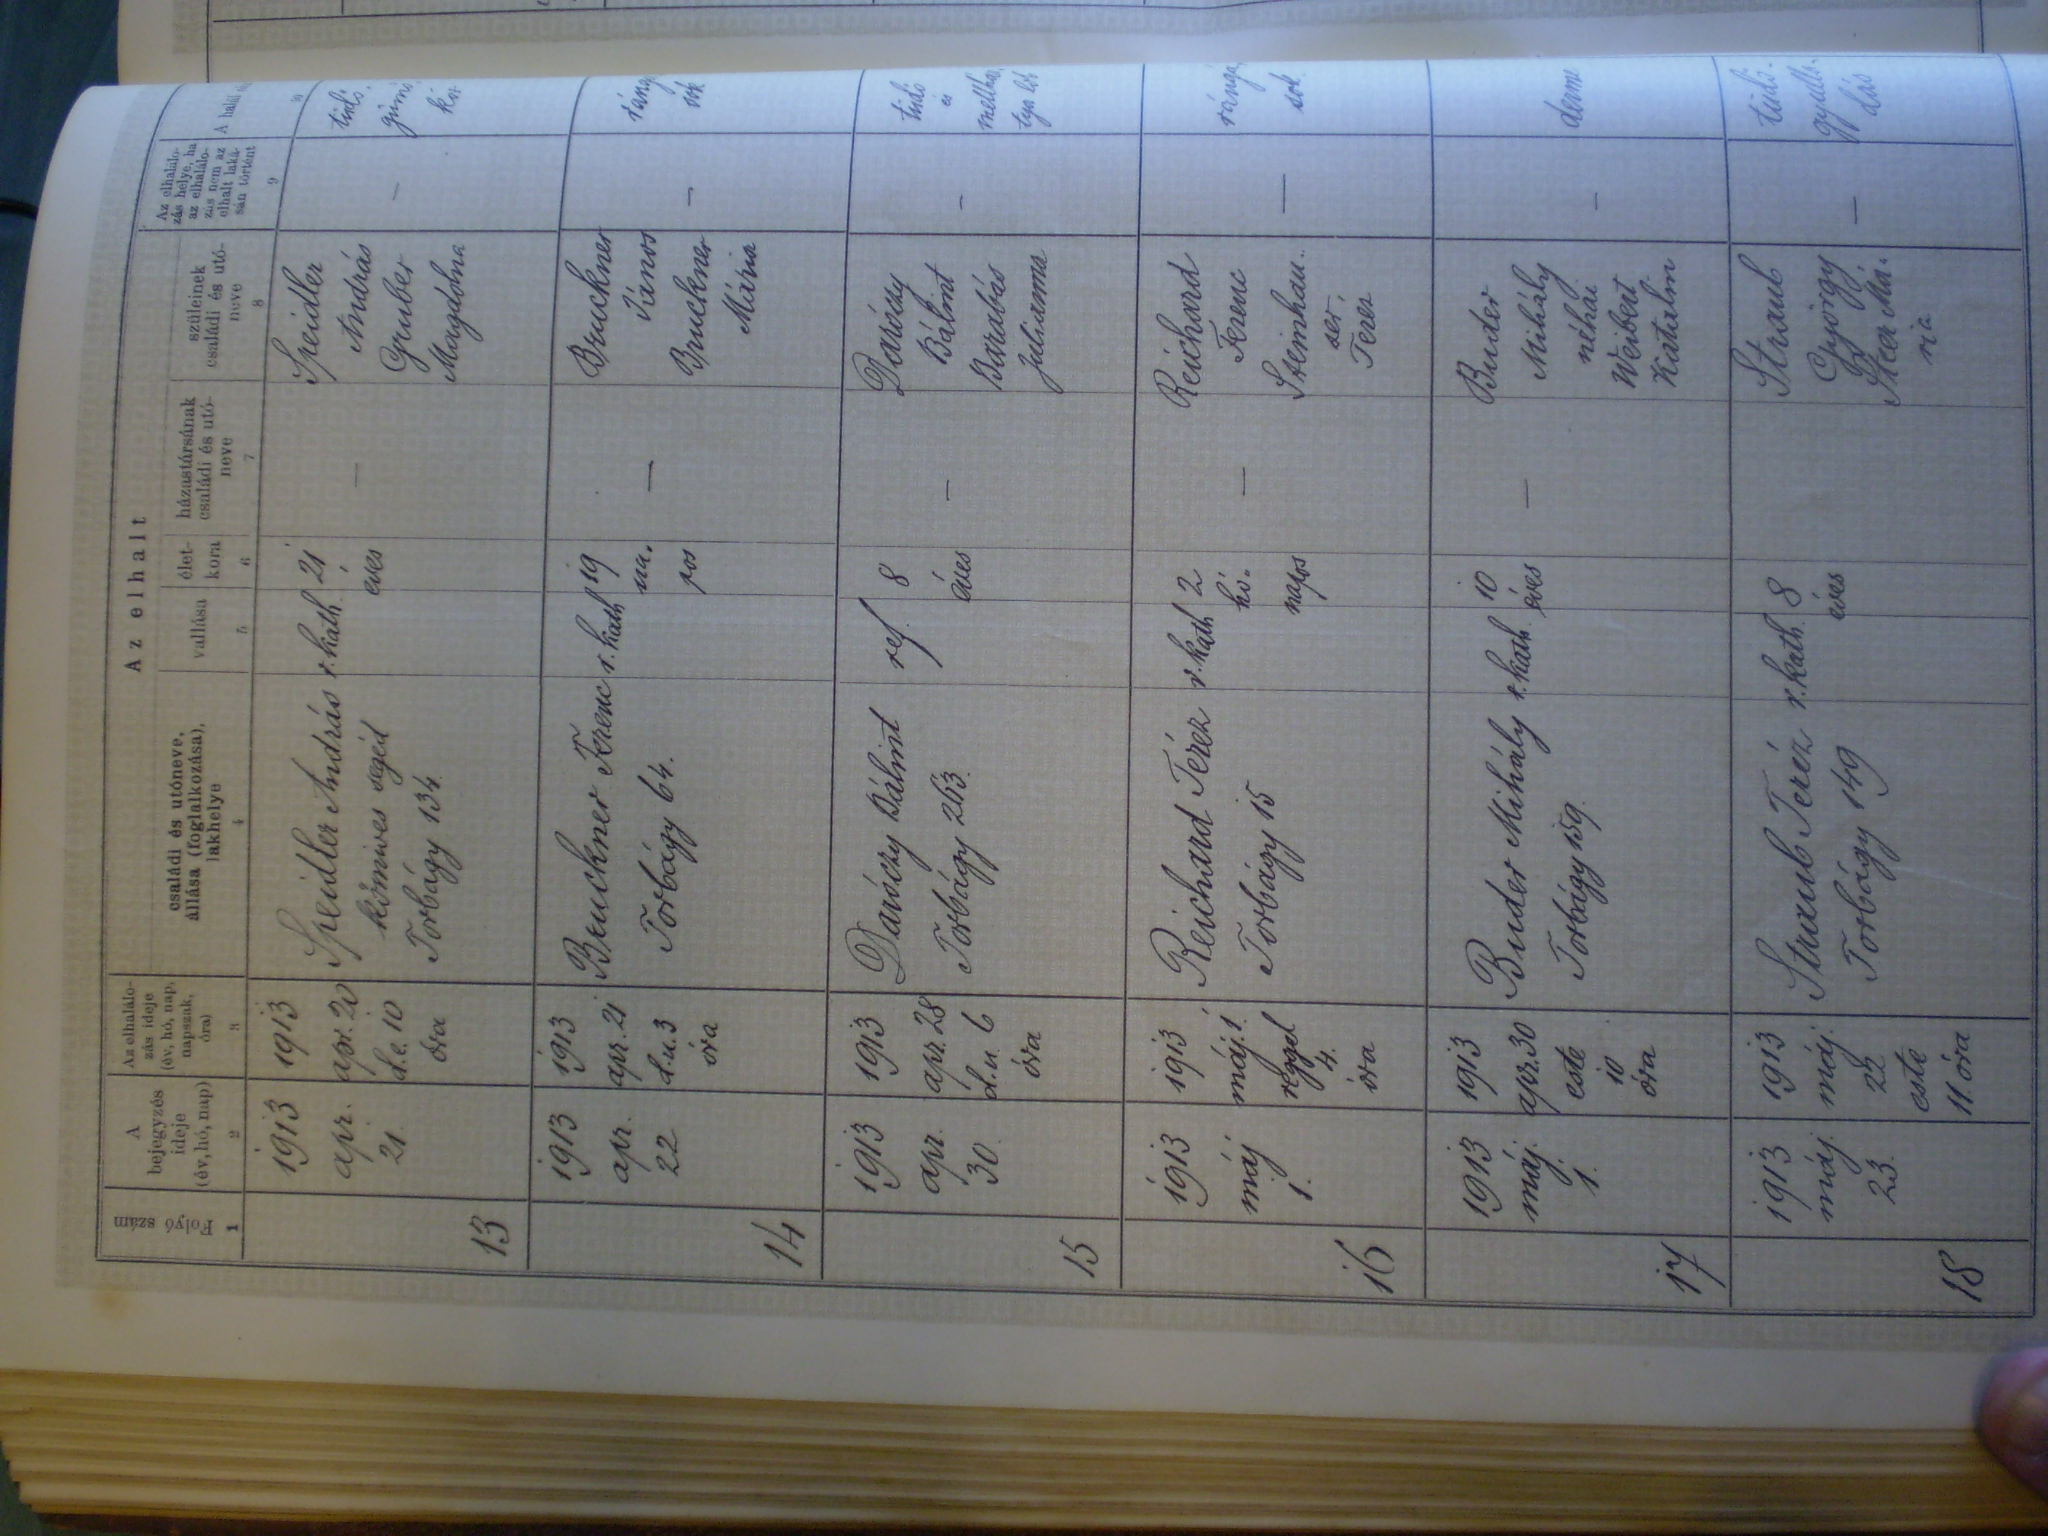 Az elhalt
Folyó
szám
A
bejegyzés
ideje
(év, hó, nap)
Az elhalálo-
zás ideje
(év, hó, nap,
napszak,
óra)
családi és utóneve,
állása (foglalkozása),
lakhelye
vallása
élet-
kora
házastársának
családi és utó-
neve
szüleinek
családi és utó-
neve
Az elhalálo-
zás helye, ha
az elhalálo-
zás nem az
elhalt laká-
sán történt
A halál
1
2
3
4
5
6
7
8
9
10
13
1913
apr.
21.
1913
apr. 20
d.e. 10
óra
Speidler András
kőmives segéd
Torbágy 134.
r. kath.
21
éves
—
Speidler
András
Gruber
Magdolna
—
tüdő.
gümő
kór
14
1913
apr.
22
1913
apr. 21
d.u. 3
óra
Bruckner Ferenc
Torbágy 64.
r. kath
19
na.
pos
—
Bruckner
János
Bruckner
Mária
—
ráng
sok
15
1913
apr.
30.
1913
apr. 28
d.u. 6
óra
Daróczy Bálint
Torbágy 263.
ref.
8
éves
—
Daróczy
Bálint
Barabás
Julianna
—
tüdő
és
mellhár
16
1913
máj
1.
1913
máj. 1.
reggel
4.
óra
Reichard Teréz
Torbágy 15
r. kath
2
hó.
napos
—
Reichard
Ferenc
Steinhau.
ser.
Terez
—
ránga
sok.
17
1913
máj.
1.
1913
apr. 30
este
10
óra
Buder Mihály
Torbágy 159.
r. kath.
10
éves
—
Buder
Mihály
néhai
Weibert
Katalin
—
18
1913
máj.
23.
1913
máj.
22
este
11. óra
Straub Teréz
Torbágy 149
r. kath.
8
éves
Straub
György
Steer Má.
ria
—
tüdő.
gyulla.
dás